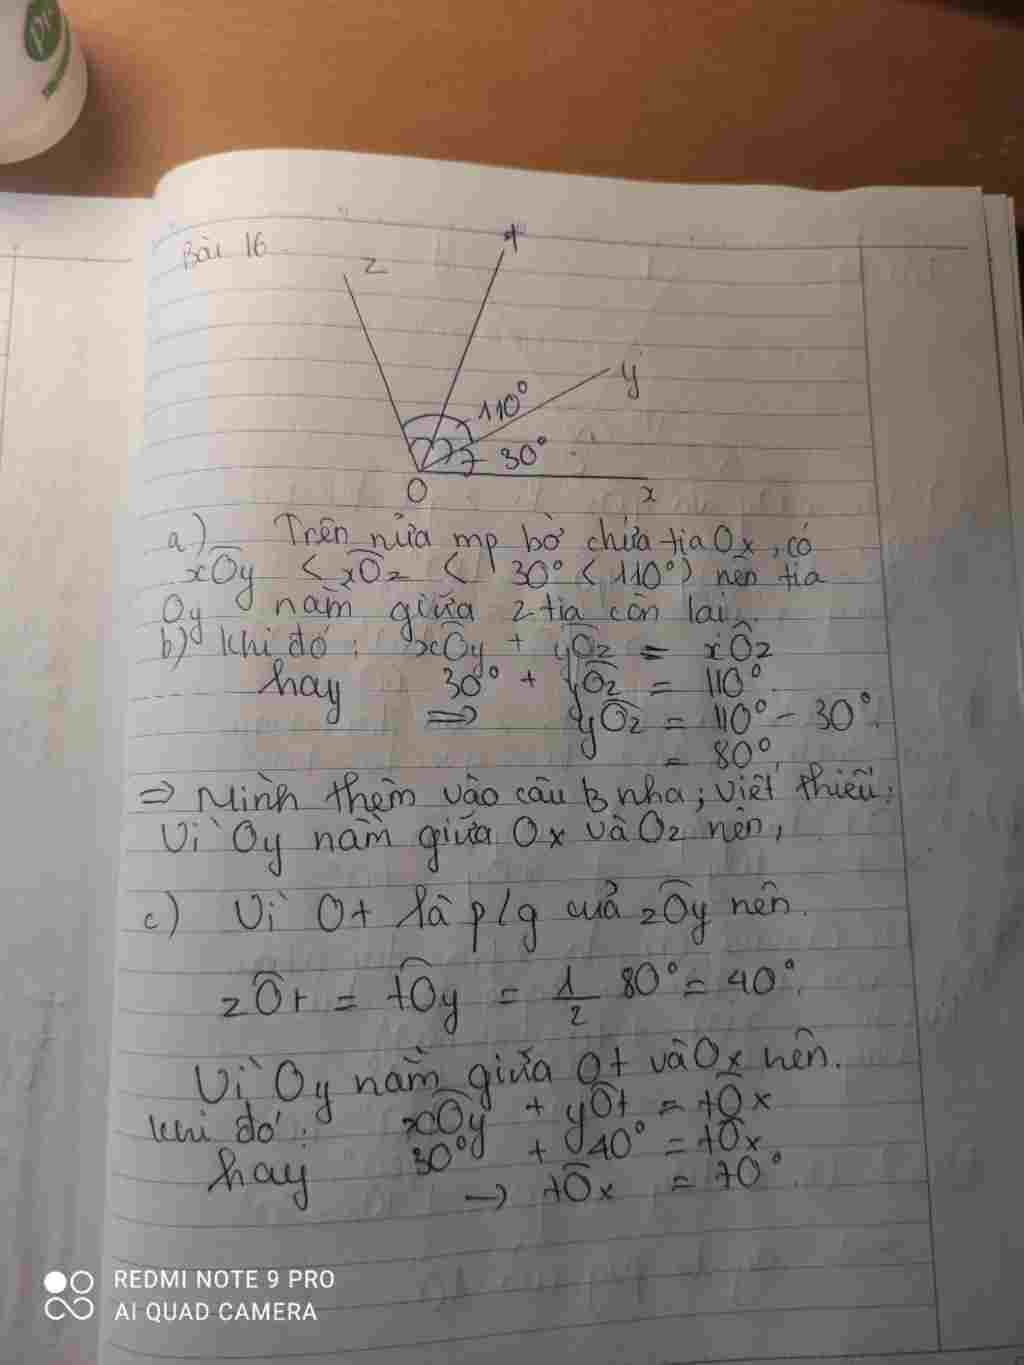 Bài 16
z
t
y
110°
30°
O
x
a) Trên nửa mp bờ chứa tia Ox, có
xOy < xOz ( 30° < 110°) nên tia
Oy nằm giữa 2 tia còn lại.
b) khi đó: xOy + yOz = xOz
hay 30° + yOz = 110°
=> yOz = 110° - 30°.
= 80°.
=> Mình thêm vào câu B nha; viết thiếu:
Vì Oy nằm giữa Ox và Oz nên,
c) Vì Ot là p/g của zOy nên.
zOt = tOy = 1/2 80° = 40°.
Vì Oy nằm giữa Ot và Ox nên.
khi đó: xOy + yOt = tOx
hay 30° + 40° = tOx
→ tOx = 70°.
REDMI NOTE 9 PRO
AI QUAD CAMERA